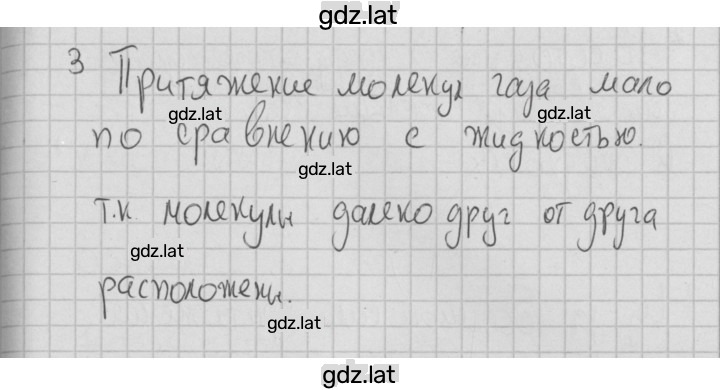 gdz.lat
3 Притяжение молекул газа мало
gdz.lat gdz.lat
по сравнению с жидкостью.
gdz.lat
т.к молекулы далеко друг от друга
gdz.lat
расположены.
gdz.lat
gdz.lat